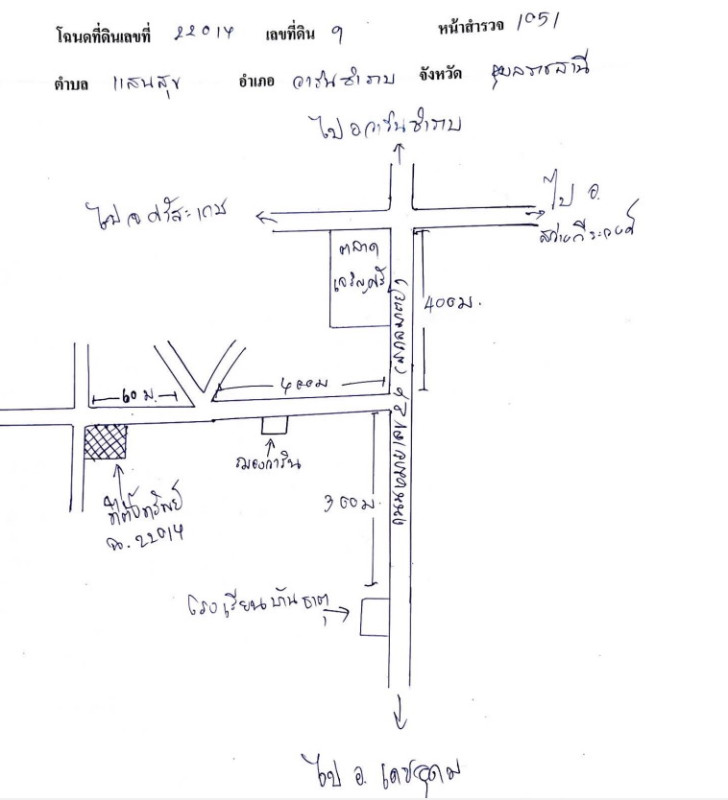 โฉนดที่ดินเลขที่ 22014 เลขที่ดิน 9 หน้าสำรวจ 1051
ตำบล แสนสุข อำเภอ วารินชำราบ จังหวัด อุบลราชธานี
ไป อ.วารินชำราบ
ไป จ.ศรีสะเกษ
ไป อ.
สว่างวีระวงศ์
ตลาด
เจริญศรี
400ม.
60 ม.
400ม
ถนนหมายเลข
ที่ตั้งทรัพย์
ฉ. 22014
300ม.
โรงเรียนบ้านธาตุ
ไป อ. เดชอุดม